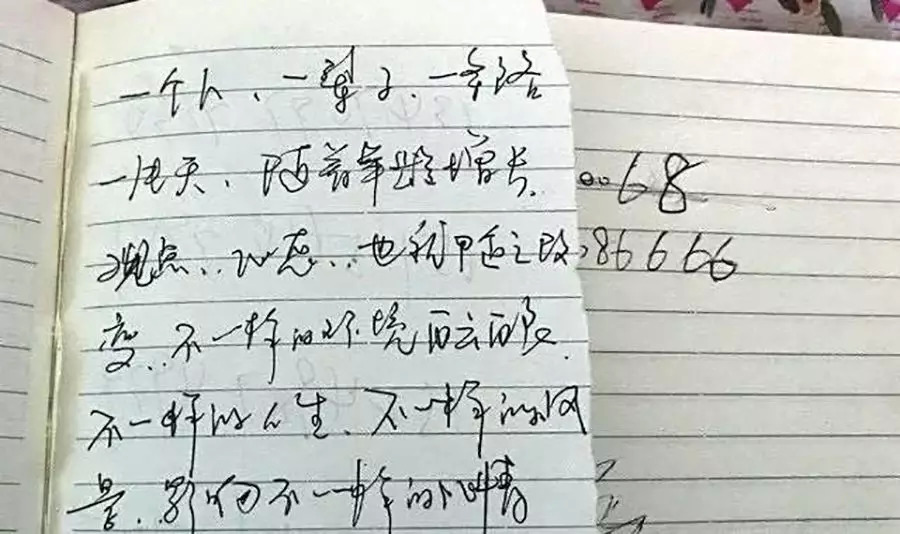 一个人、一辈子、一条路
一片天、随着年龄增长.
观点、心态、也利随之改
变、不一样的环境
不一样的人生、不一样的风
景、影响不一样的心情
68
86666